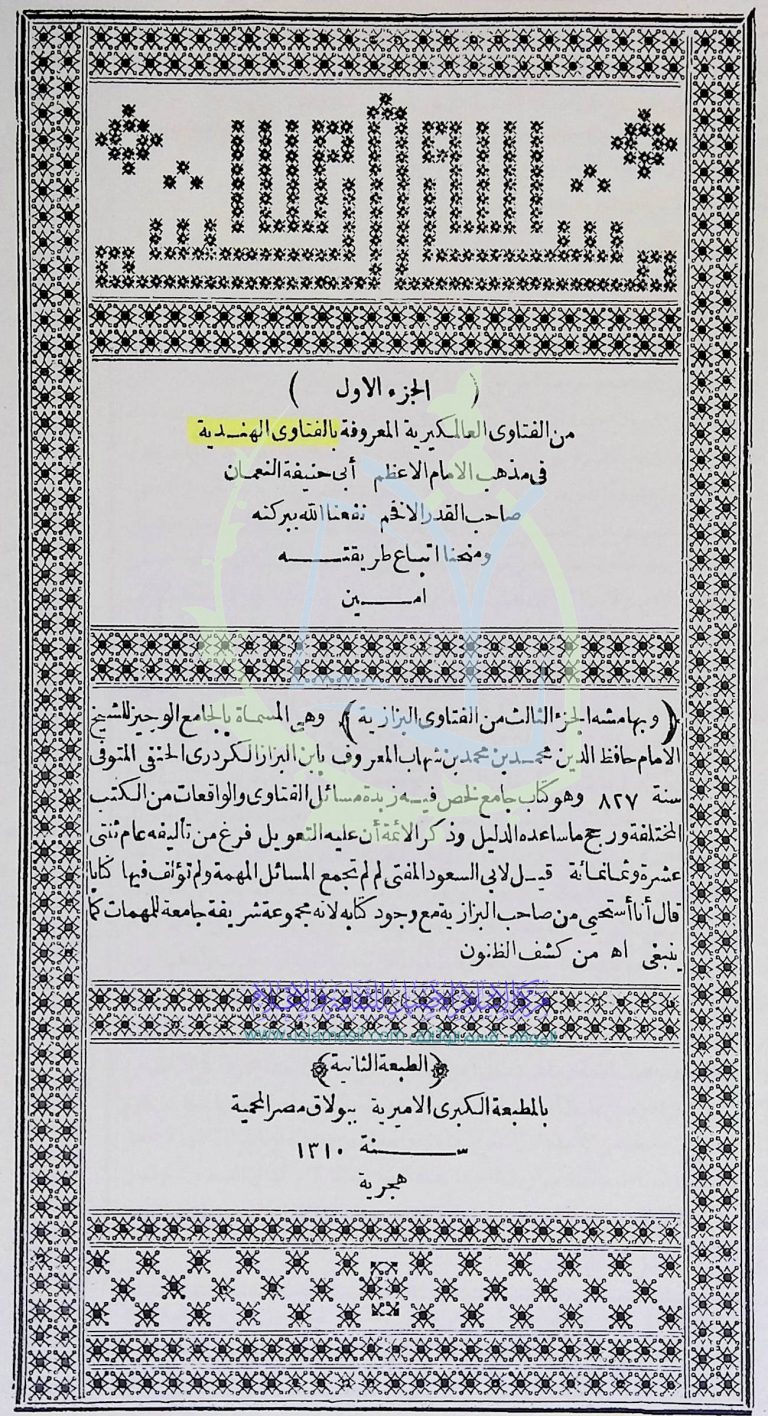 ( الجزء الاول )
من الفتاوى العالمكيرية المعروفة بالفتاوى الهندية
فى مذهب الامام الاعظم أبى حنيفة النعمان
صاحب القدر الافخم نفعنا الله ببركته
ومنحنا اتباع طريقته
امين
(وبهامشه الجزء الثالث من الفتاوى البزازية) وهى المسماة بالجامع الوجيز للشيخ
الامام حافظ الدين محمد بن محمد بن شهاب المعروف بابن البزاز الكردرى الحنفى المتوفى
سنة ٨٢٧ وهو كتاب جامع لخص فيه زبدة مسائل الفتاوى والواقعات من الكتب
المختلفة ورجح ماساعده الدليل وذكر الأئمة أن عليه التعويل فرغ من تأليفه عام ثنتى
عشرة وثمانمائة قيل لابى السعود المفتى لم لم تجمع المسائل المهمة ولم تؤلف فيها كتابا
قال أنا أستحيى من صاحب البزازية مع وجود كتابه لانه مجموعة شريفة جامعة للمهمات كما
ينبغى اه من كشف الظنون
(الطبعة الثانية)
بالمطبعة الكبرى الاميرية ببولاق مصر المحمية
سنة ١٣١٠
هجرية